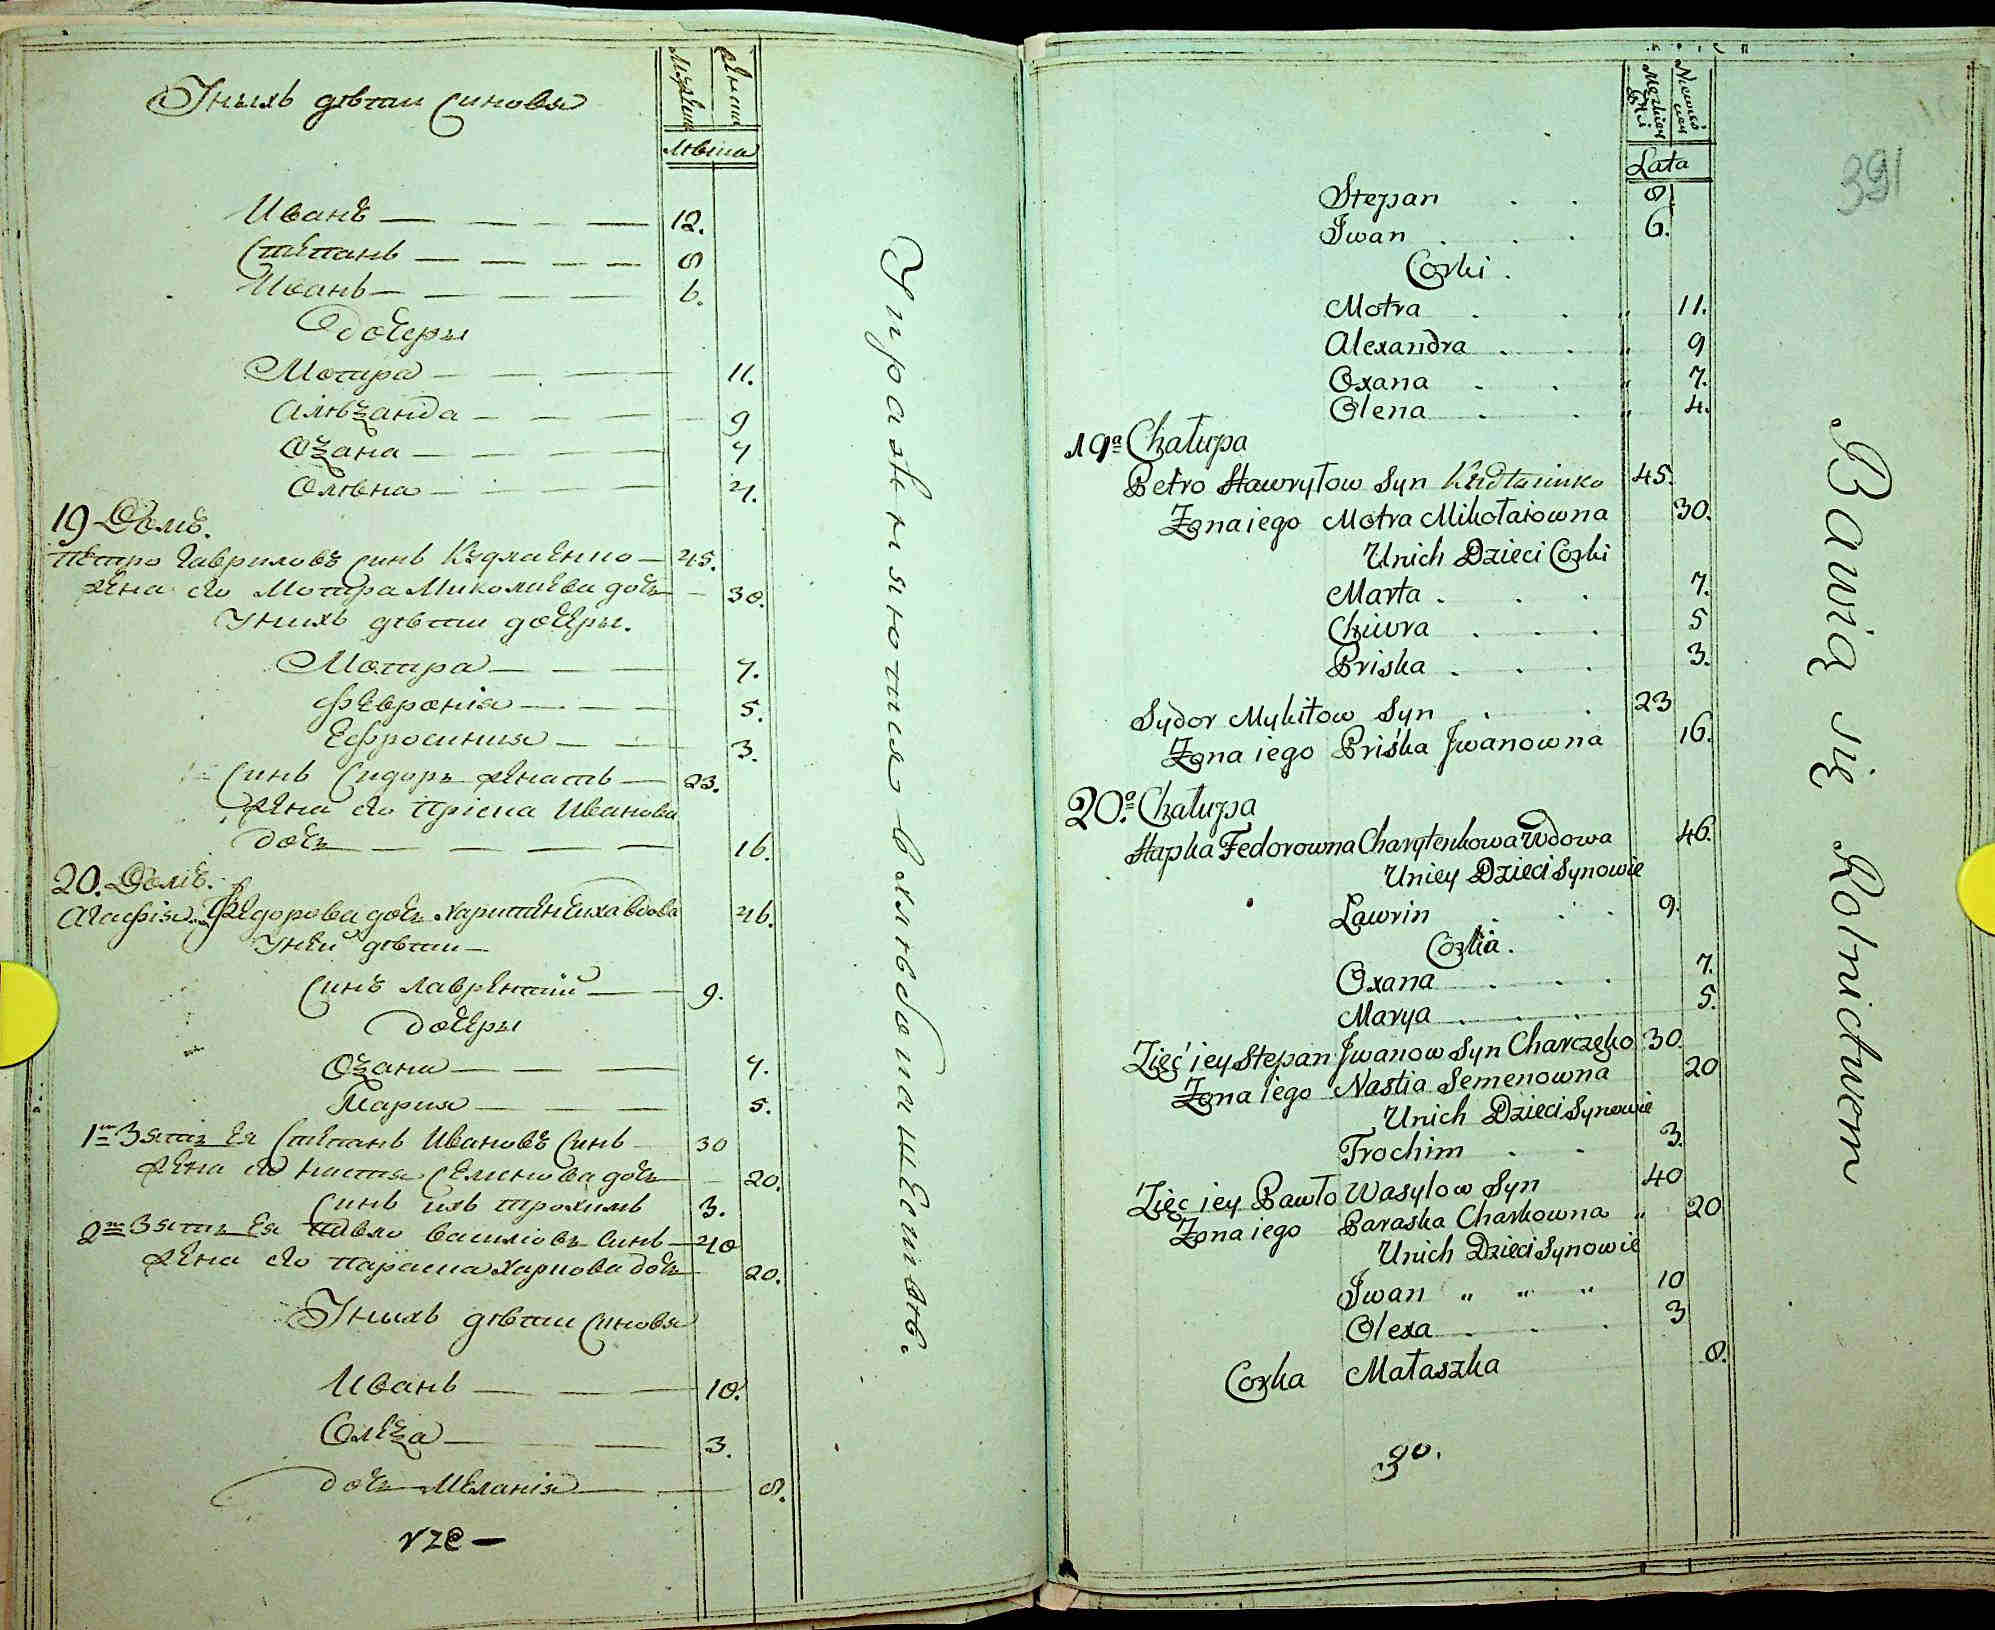 Уныхъ дѣти синовя
Мужеск
Женск
лѣта
Иванъ — 12.
Степанъ — 8
Иванъ — 6.
дочеры
Мотра — 11.
Алѣѯанда — 9
Оѯана — 7
Олѣна — 4.
19 Домъ.
Петро Гавриловъ синъ — 45.
жена его Мотра Миколаева дочъ — 30.
Унихъ дѣти дочеры.
Мотра — 7.
Февронія — 5.
Ефросиния — 3.
Синъ Сидоръ женатъ — 23.
жена его Пріска Иванова
дочъ — 16.
20. Домъ.
Агафія Федорова дочъ Харитенкиха вдова 46.
Уней дѣти —
Синъ Лаврентій — 9.
дочеры
Оѯана — 7.
Мария — 5.
1й Зять Ея Степанъ Ивановъ Синъ 30
жена его Настя Семенова дочъ — 20.
Синъ ихъ Трохимъ 3.
2й Зять Ея Павло Василіовъ Синъ — 40
жена его Параска Харкова дочъ 20.
Уныхъ дѣти Синовя
Иванъ — 10.
Олеѯа — 3.
дочъ Меланія — 8.
Упражняются в хлѣбопашествѣ.
391
Męzkiey Płci
Niewieściey
Lata
Stepan . . 8
Jwan . . . 6.
Corki .
Motra . . „ 11.
Alexandra . . „ 9
Oxana . . „ 7.
Olena . . „ 4.
19a Chałupa
Petro Hawryłow Syn 45.
Zona iego Motra Mikołaiowna 30.
Unich Dzieci Corki
Marta . . . 7.
Chiwra . . . 5
Priska . . . 3.
Sydor Mykitow Syn . . 23
Zona iego Priśka Jwanowna 16.
20.a Chałupa
Hapka Fedorowna Charytenkowa Wdowa 46.
Uniey Dzieci Synowie
Lawrin . . . 9.
Corka .
Oxana . . . 7.
Marya . . . 5.
Zięć iey Stepan Jwanow Syn 30.
Zona iego Nastia Semenowna 20
Unich Dzieci Synowie
Trochim . . 3.
Zięc iey Pawło Wasylow Syn 40
Zona iego Paraska Charkowna „ 20
Unich Dzieci Synowie
Jwan „ „ „ 10
Olexa . . . 3
Corka Małaszka 8.
90.
Bawią się Rolnictwem